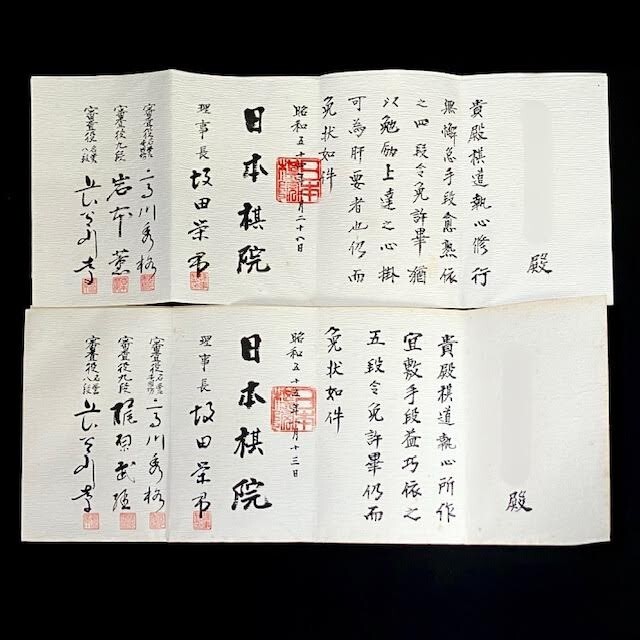 殿
貴殿棋道執心修行
無懈怠手段愈熟依
之四段令免許畢猶
以勉励上達之心掛
可為肝要者也仍而
免状如件
昭和五十年月二十八日
日本棋院
理事長 坂田栄男
審査役 高川秀格
審査役九段 岩本薫
審査役名誉八段 長谷川章
殿
貴殿棋道執心所作
宜敷手段益巧依之
五段令免許畢仍而
免状如件
昭和五十五年月十三日
日本棋院
理事長 坂田栄男
審査役 高川秀格
審査役九段 梶原武雄
審査役名誉八段 長谷川章